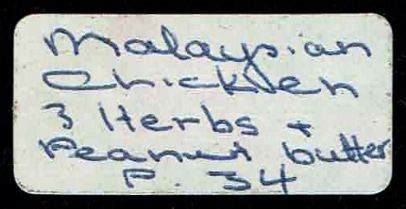 Malaysian
Chickken
3 Herbs +
Peanut butter
P. 34